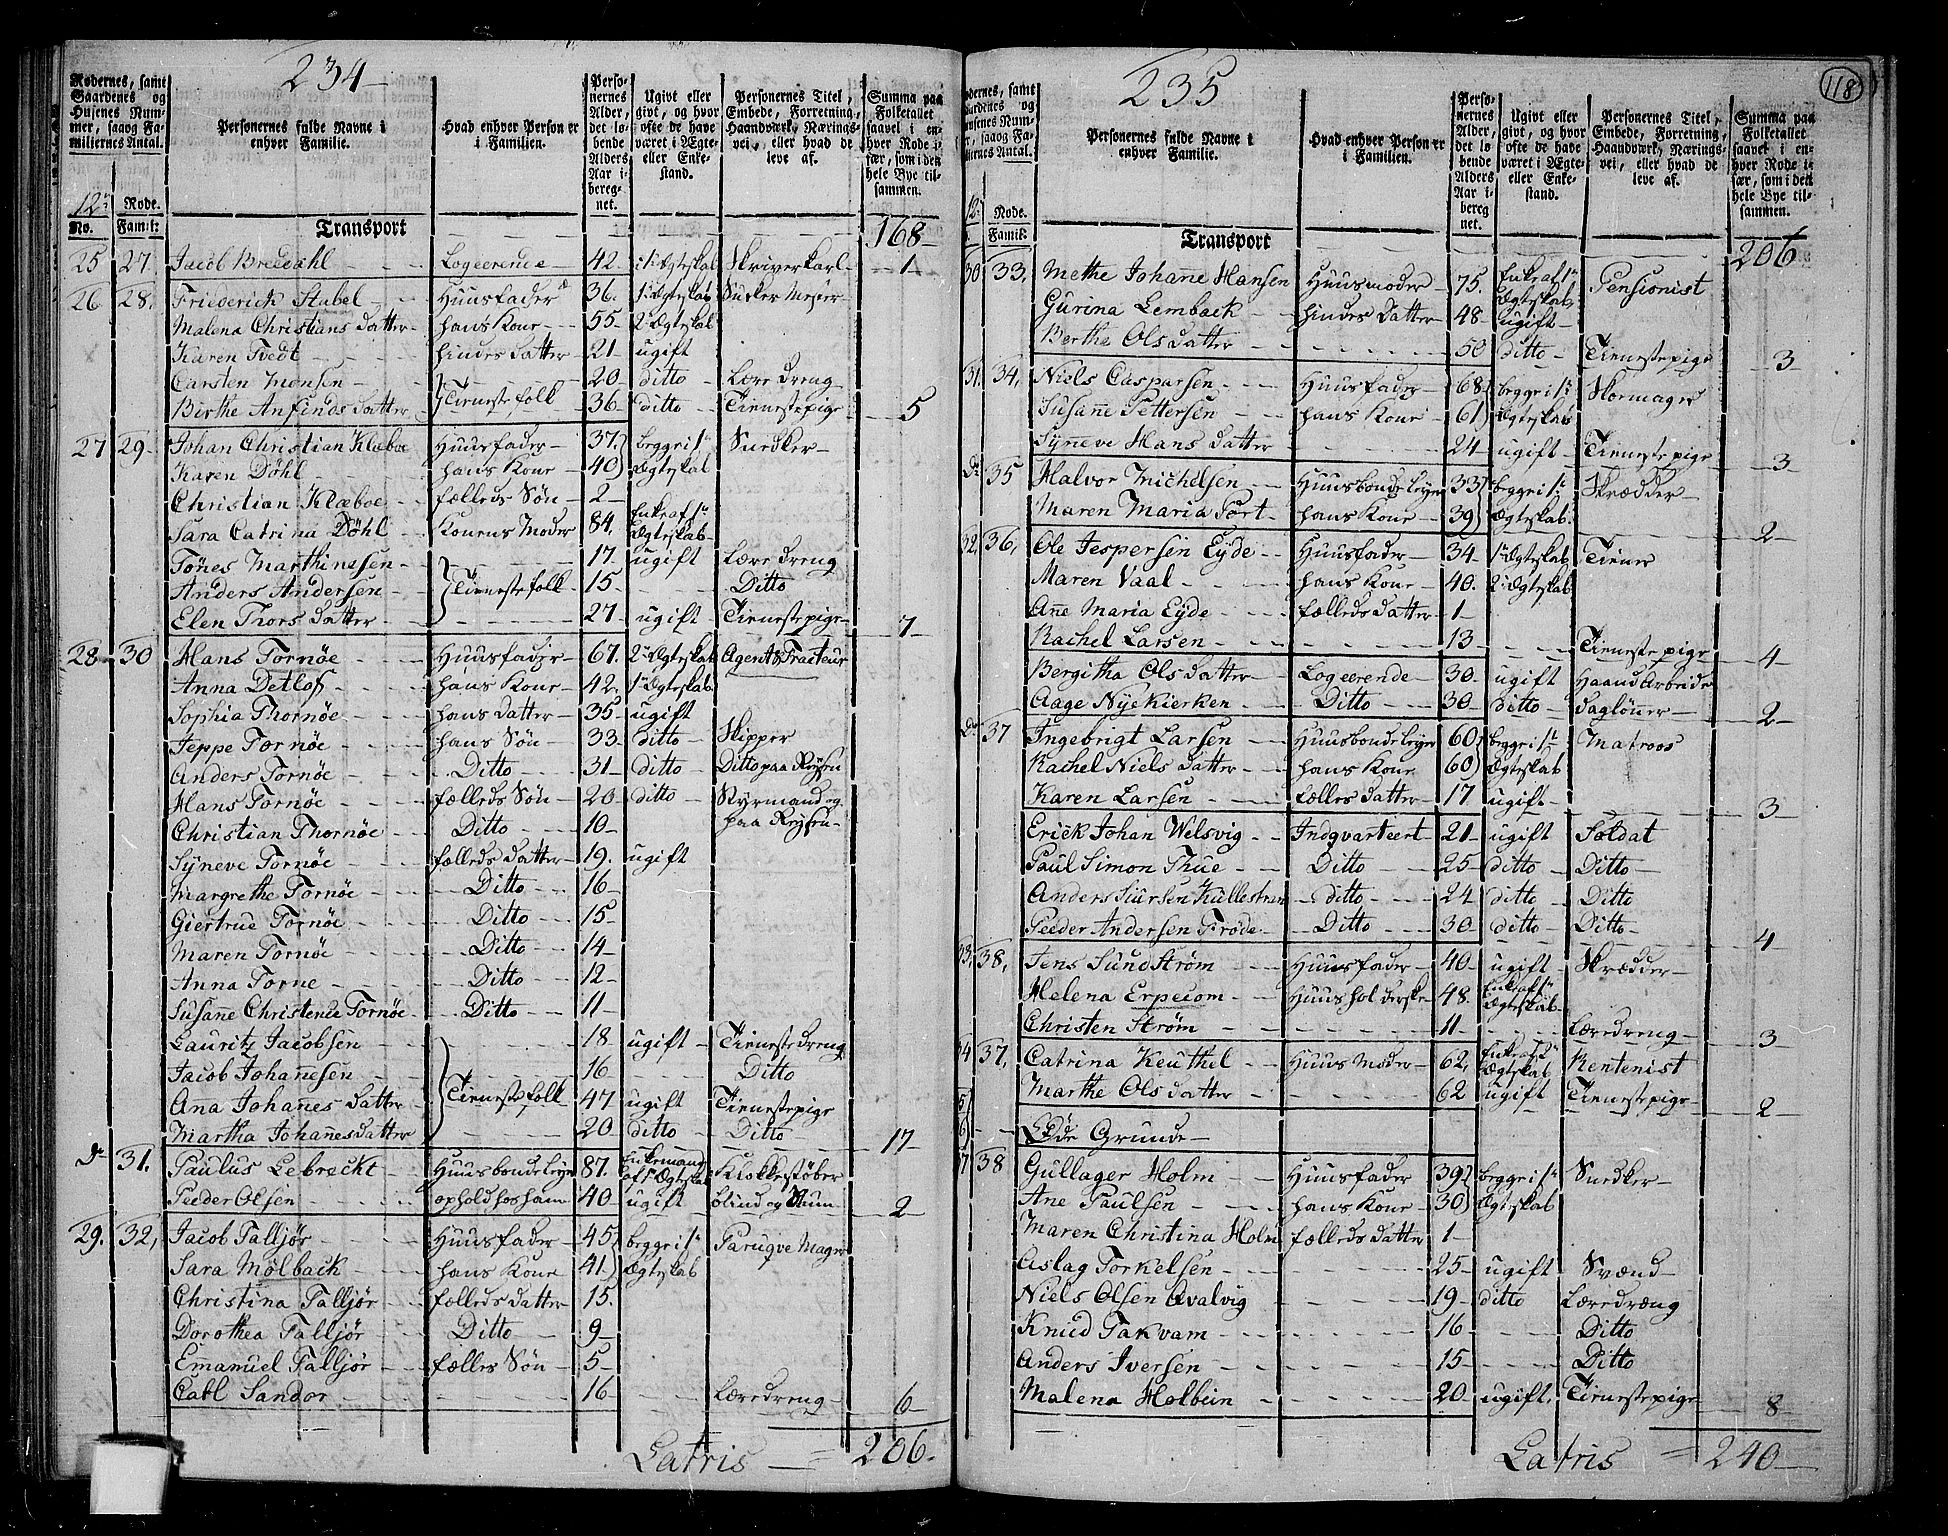 234
Rodernes, samt Gaardenes og Husenes Nummer, saaog Familiernes Antal.
Personernes fulde Navne i enhver Familie.
Hvad enhver Person er i Familien.
Personernes Alder, det løbende Alders Aar iberegnet.
Ugivt eller givt, og hvor ofte de have været i Ægte- eller Enkestand.
Personernes Titel, Embede, Forretning, Haandværk, Næringsvei, eller hvad de leve af.
Summa paa Folketallet saavel i enhver Rode især, som i den hele Bye tilsammen.
12te Rode.
No. Famil:
Transport 168
25 27. Jacob Bredahl Logeerende 42. i 1te Ægteskab Skriverkarl 1
26 28. Friederich Stabel Huusfader 36. 1te Ægteskab Sukker Mester
Malena Christians datter hans Kone 55 2det Ægteskab
Karen Tvedt hindes datter 21 ugift
Carsten Monsen 20 ditto Lære dreng
Birthe Anfinds datter Tienestefolk 36 ditto Tienestepige 5
27 29 Johan Christian Klæboe Huusfader 37. begge i 1te Snedker
Karen Döhl hans Kone 40 Ægteskab
Christian Klæboe fælleds Søn 2
Sara Catrina Döhl Konens Moder 84. Enke af 1te Ægteskab
Tönes Marthinusen 17. ugift Lære dreng
Anders Andersen Tienestefolk 15 Ditto
Elen Thors datter 27 ugift Tienestepige 7
28 30 Hans Tornöe Huusfader 67. 2det Ægteskab Agent & Tracteur
Anna Detlof hans Kone 42. 1te Ægteskab
Sophia Thornöe hans datter 35 ugift
Jeppe Tornöe hans Søn 33 ditto Skipper
Anders Tornöe Ditto 31 ditto Ditto paa Reysen
Hans Tornöe fælleds Søn 20 ditto Styrmand og paa Reysen
Christian Thornöe Ditto 10
Syneve Tornöe fælleds datter 19. ugift
Margrethe Tornöe Ditto 16
Giertrue Tornöe Ditto 15
Maren Tornöe Ditto 14
Anna Torne Ditto 12
Susanne Christence Tornöe Ditto 11
Lauritz Jacobsen 18 ugift Tieneste dreng
Jacob Johannesen 16 Ditto
Anna Johannes datter Tienestefolk 47 ugift Tienestepige
Martha Johannesdatter 20 ditto Ditto 17
Do 31. Paulus Lebrecht Huusbonde leyer 87. Enkemand af 1te Ægteskab Klokkestøber
Peeder Olsen ophold hos ham 40 ugift blind og Stum 2
29. 32. Jacob Talljör Huusfader 45 begge i 1te Paruqve Mager
Sara Mölback hans Kone 41 Ægteskab
Christina Talljör fælleds datter 15.
Dorothea Talljör Ditto 9
Emanuel Talljör fælles Søn 5
Carl Sandor 16 Læredreng 6
Latris = 206.
118
235
Rodernes, samt Gaardenes og Husenes Nummer, saaog Familiernes Antal.
Personernes fulde Navne i enhver Familie.
Hvad enhver Person er i Familien.
Personernes Alder, det løbende Alders Aar iberegnet.
Ugivt eller givt, og hvor ofte de have været i Ægte- eller Enkestand.
Personernes Titel, Embede, Forretning, Haandværk, Næringsvei, eller hvad de leve af.
Summa paa Folketallet saavel i enhver Rode især, som i den hele Bye tilsammen.
12. Rode.
Famil:
Transport 206
30 33, Methe Johanne Hansen Huusmoder 75. Enke af 1te Ægteskab Pensionist
Gurina Lemback hindes datter 48 ugift
Berthe Ols datter 50 ditto Tienestepige 3
31. 34, Niels Caspersen Huusfader 68 begge i 1te Skomager
Susanne Pettersen hans Kone 61 Ægteskab
Syneve Hans datter 24 ugift Tienestepige 3
Do 35 Halvor Michelsen Huusbonde leyer 33 begge i 1te Skrædder
Maren Maria Fort hans Kone 39 Ægteskab. 2
32, 36, Ole Jespersen Eyde Huusfader 34 1te Ægteskab Tiener
Maren Vaal hans Kone 40. 2det Ægteskab
Anne Maria Eyde fælleds datter 1
Rachel Larsen 13 Tienestepige 4
Bergitha Ols datter Logeerende 30 ugift Haand Arbeide
Aage Nyekierken Ditto 30 ditto dagløner 2
Do 37 Ingebrigt Larsen Huusbonde leyer 60 begge i 1te Matroos
Rachel Niels datter hans Kone 60 Ægteskab
Karen Larsen fælles datter 17 ugift 3
Erick Johan Welsvig Indqvarteert 21 ugift Soldat
Paul Simon Thue Ditto 25 ditto Ditto
Anders Siursen Kullestrun ditto 24 ditto Ditto
Peeder Andersen Fröde Ditto 30 ditto Ditto 4
33, 38, Jens Sundström Huusfader 40 ugift Skrædder
Helena Erpecom Huusholderske 48. Enke af 1te Ægteskab
Christen Ström 11 Læredreng 3
34 37, Catrina Keuthel Huus Moder 62, Enke af 2det Ægteskab Rentenist
Marthe Ols datter 62 ugift Tienestepige 2
5
6 Øde Grunde
7 38 Gullager Holm Huusfader 39 begge i 1te Snedker
Ane Paulsen hans Kone 30 Ægteskab
Maren Christina Holm fælleds datter 1
Aslag Torkelsen 25 ugift Svænd
Niels Olsen Qvalvig 19 ditto Læredræng
Knud Takvam 16 Ditto
Anders Iversen 15 Ditto
Malena Holbein 20 ugift. Tienestepige 8
Latris = 240